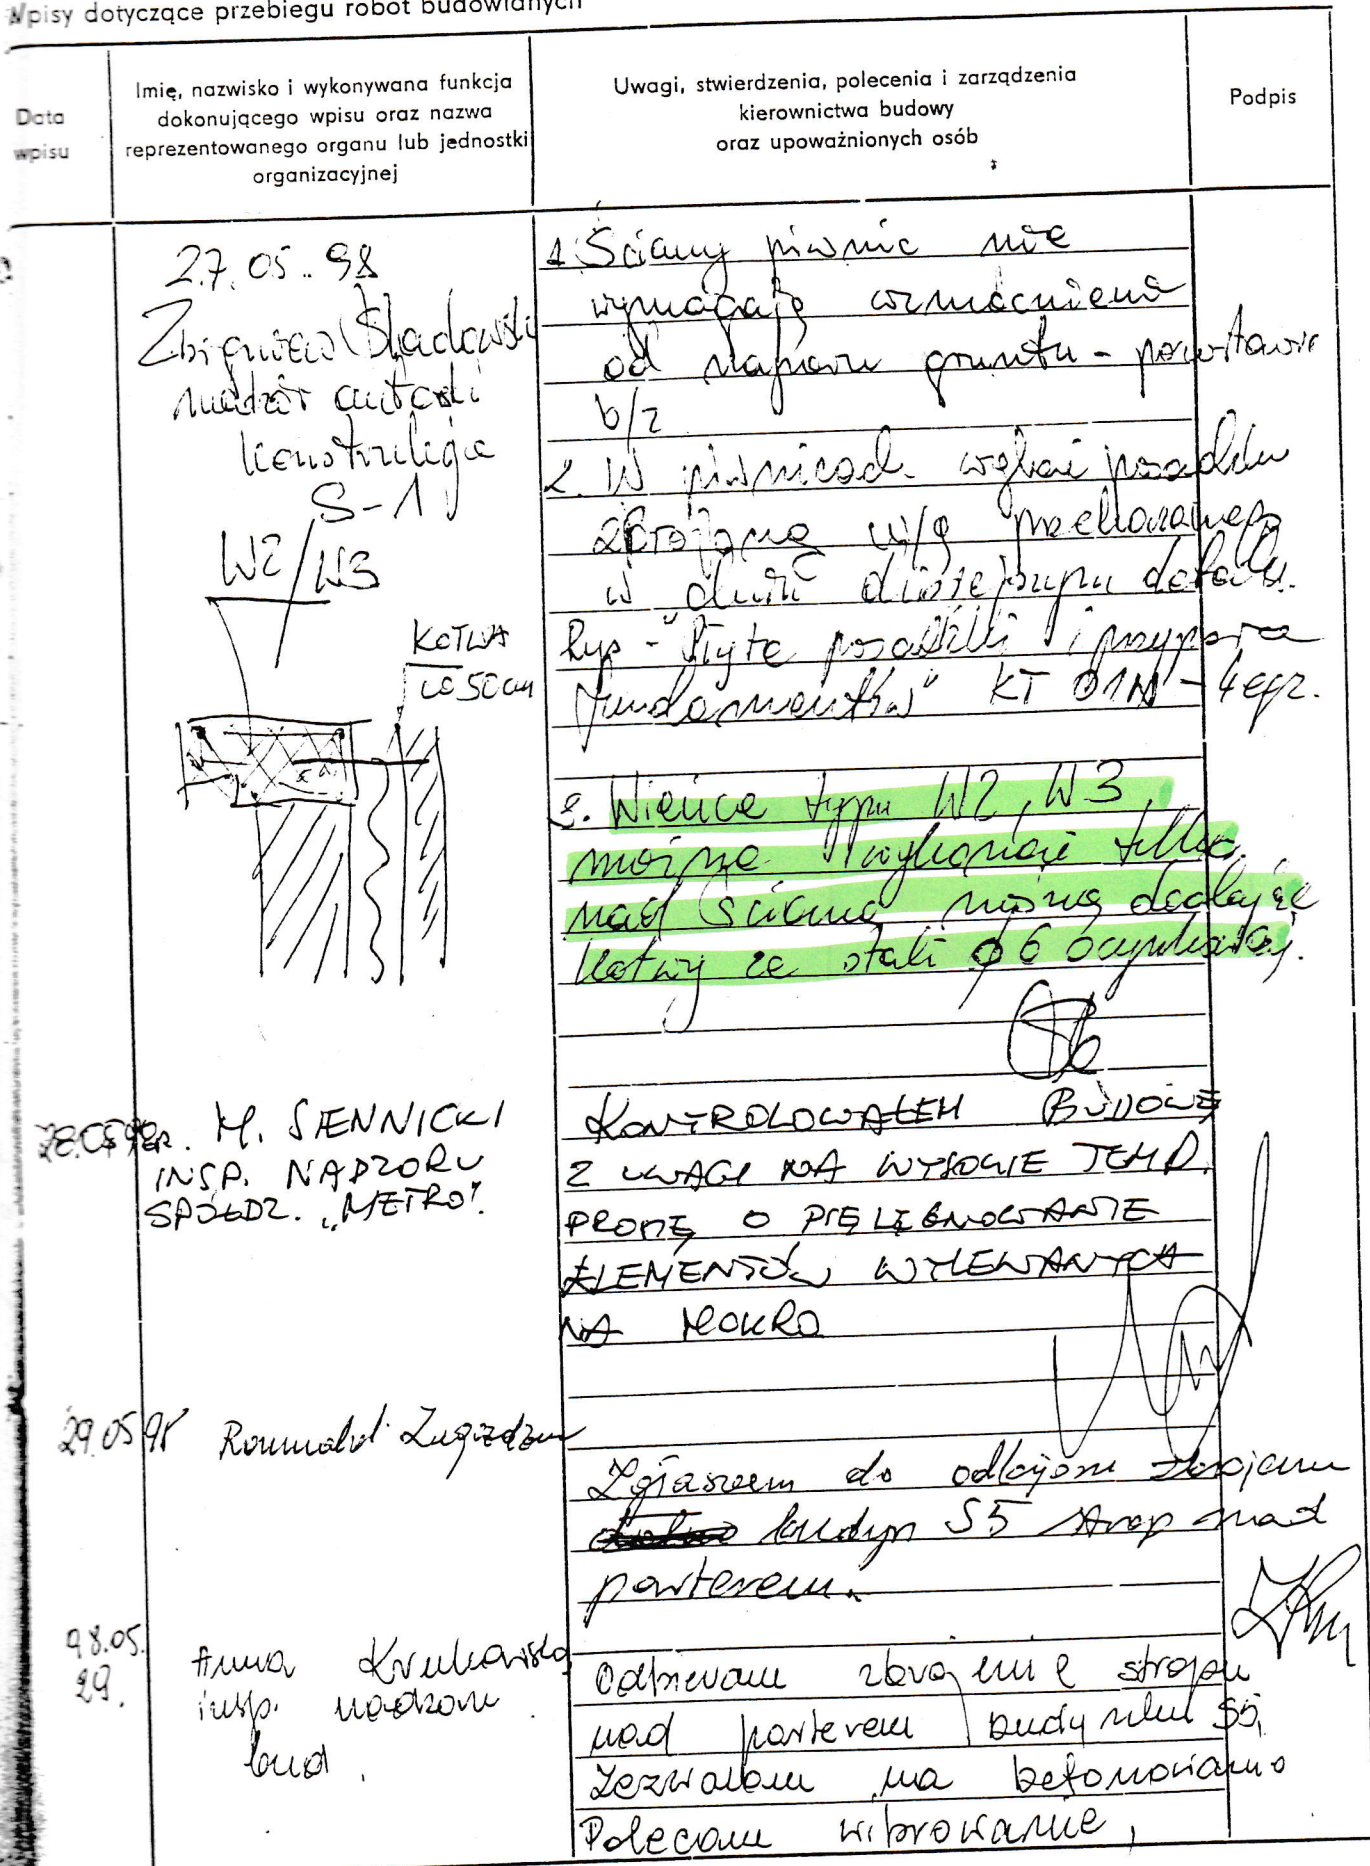 Wpisy dotyczące przebiegu robót budowlanych
Data
wpisu
Imię, nazwisko i wykonywana funkcja
dokonującego wpisu oraz nazwa
reprezentowanego organu lub jednostki
organizacyjnej
Uwagi, stwierdzenia, polecenia i zarządzenia
kierownictwa budowy
oraz upoważnionych osób
Podpis
27.05.98
Zbigniew
nadzór autorski
konstrukcja
S-1
W2/W3
KOTWA
co 50cm
1. Ściany piwnic nie
wymagają wzmocnienia
od naporu gruntu - pozostawić
b/z
2. W piwnicach wylać posadzkę
zbrojoną w/g przekazanego
w dniu dzisiejszym detalu.
Rys - "Płyta posadzki i przypora
fundamentów" KT 01N - 4egz.
3. Wieńce typu W2, W3
można wykonać tylko
nad ścianą nośną dodając
kotwy ze stali ϕ6 ocynkowanej.
28.05.98r. M. SIENNICKI
INSP. NADZORU
SPÓŁDZ. "METRO".
KONTROLOWAŁEM BUDOWĘ
Z UWAGI NA WYSOKIE TEMP.
PROSZĘ O PIĘLĘGNOWANIE
ELEMENTÓW WYLEWANYCH
NA MOKRO
29.05.98 Romuald
Zgłaszam do odbioru zbrojenie
budyn S5 strop nad
parterem.
98.05.
29.
Anna Krukowska
insp. nadzoru
bud.
Odbieram zbrojenie stropu
nad parterem budynku S5,
Zezwalam na betonowanie
Polecam wibrowanie,